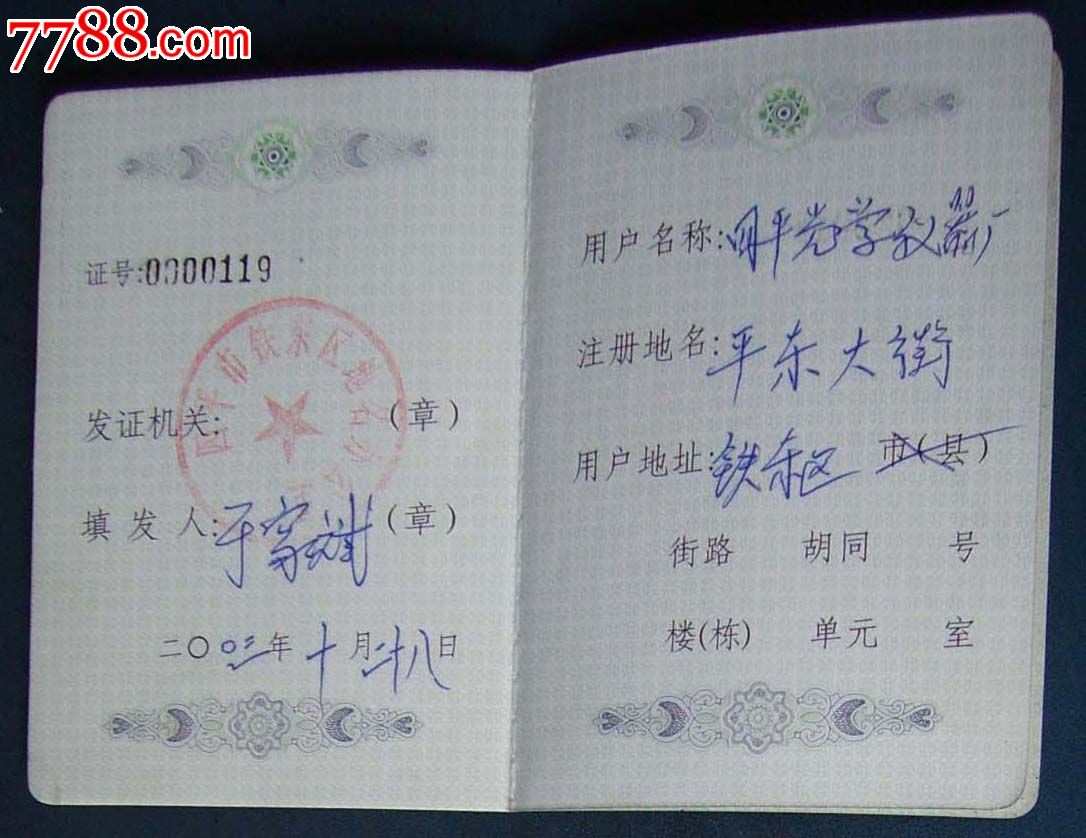 7788.com
证号:0000119
四平市铁东区地名办公室
发证机关: (章)
填发人:于富树(章)
二〇〇三年十月二十八日
用户名称:四平光学仪器厂
注册地名:平东大街
用户地址:铁东区 市(县)
街路 胡同 号
楼(栋) 单元 室